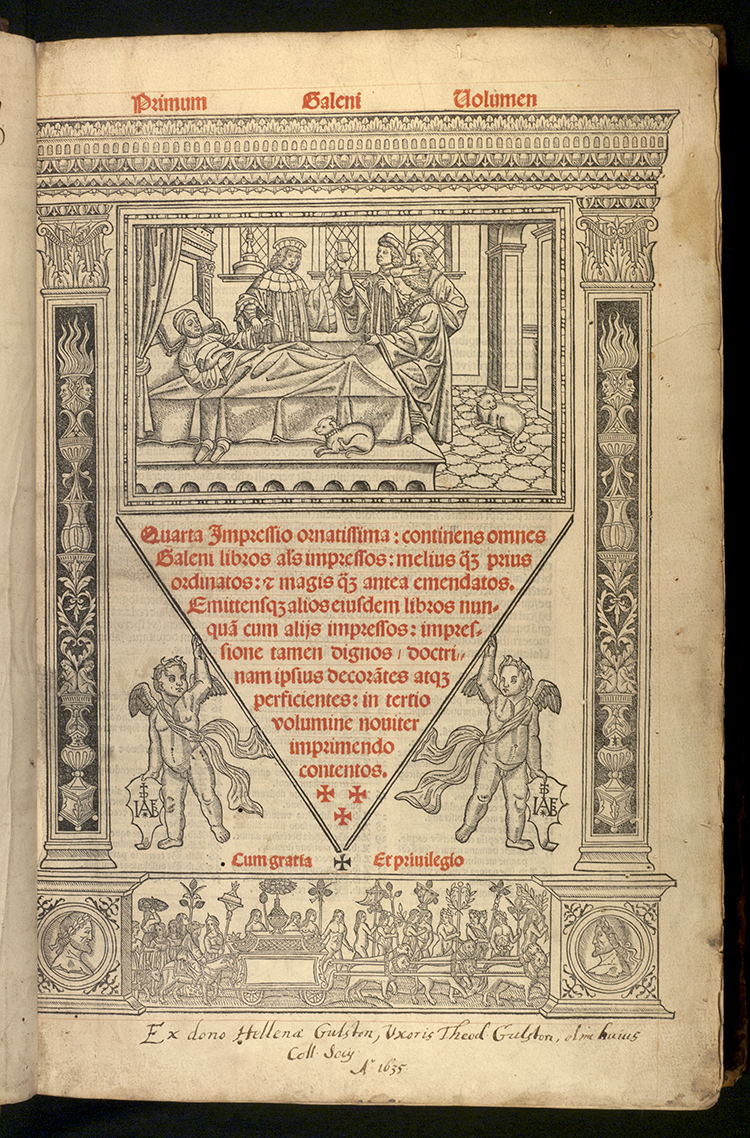 Primum Galeni Uolumen
Quarta Impressio ornatissima : continens omnes
Galeni libros al's impressos : melius q̄ȝ prius
ordinatos : ⁊ magis q̄ȝ antea emendatos.
Emittensqȝ alios eiusdem libros nun-
quā cum alijs impressos : impres-
sione tamen dignos / doctri-
nam ipsius decorātes atqȝ
perficientes : in tertio
volumine noviter
imprimendo
contentos.
IAB
IAB
Cum gratia Et privilegio
Ex dono Hellenæ Gulston, Uxoris Theod Gulston, huius
Coll. Socij
Aº 1635